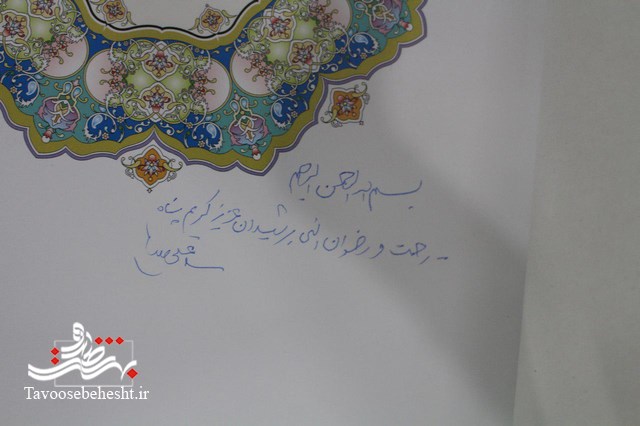 بسم الله الرحمن الرحیم
رحمت و رضوان الهی بر شهیدان عزیز کریم پناه
سید علی
Tavoosebehesht.ir